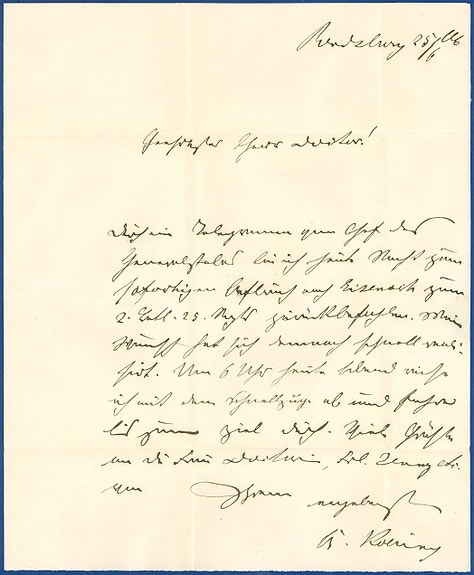 Rendsburg 25/6 66
Geehrtester Herr Doctor!
Durch ein Telegramm vom Chef des
Generalstabes bin ich heute Nacht zum
sofortigen Aufbruch nach Eisenach zum
2. Batl. 25. Regts zurückbefohlen. Mein
Wunsch hat sich demnach schnell reali-
sirt. Um 6 Uhr heute Abend reise
ich mit dem Schnellzuge ab und fahre
bis zum Ziel durch. Viele Grüße
an die Frau Doctorin, Frl.
von Ihrem ergebenst